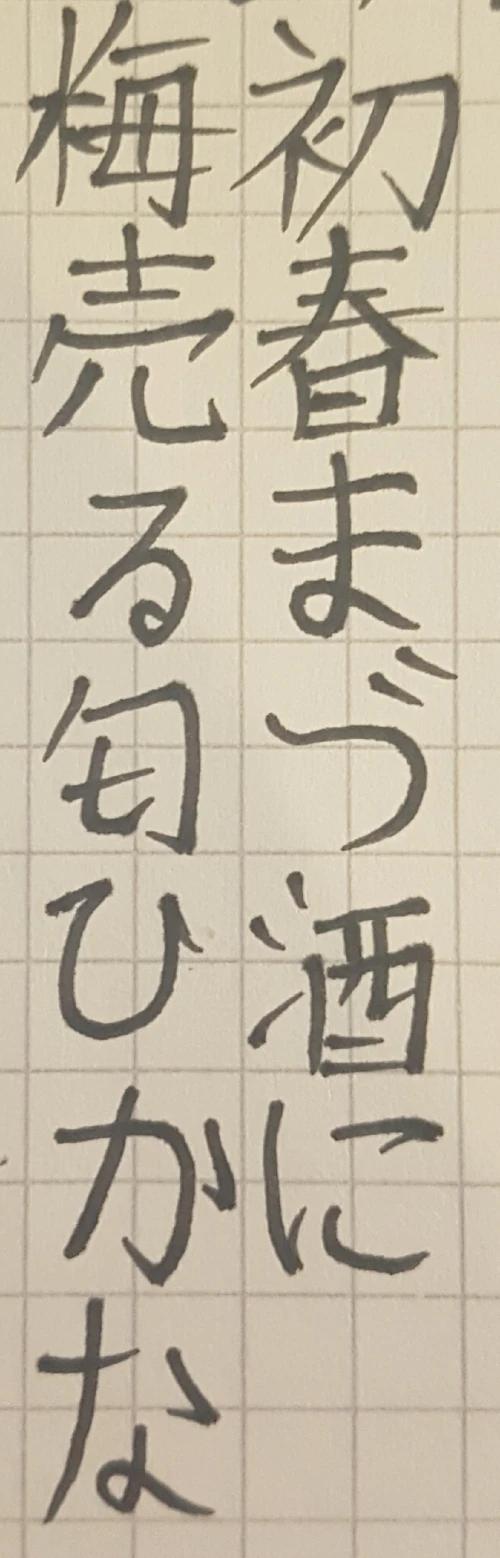 初春まづ酒に
梅売る匂ひかな